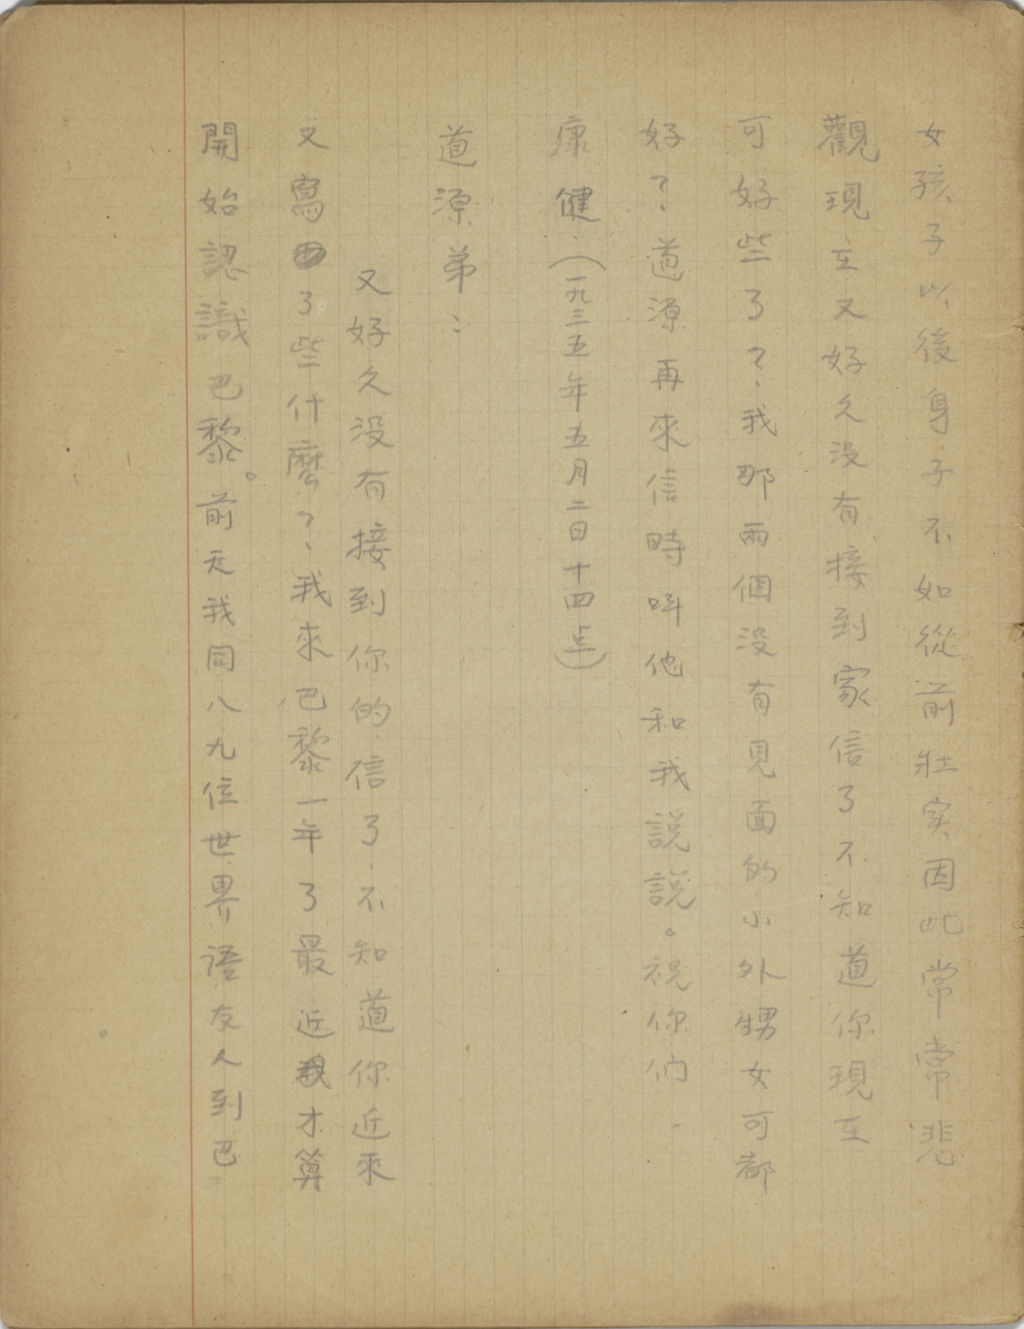 女孩子以後身子不如從前壯实因此常常悲
觀現在又好久没有接到家信了不知道你現在
可好些了？我那兩個没有見面的小外甥女可都
好？道源再來信時叫他和我説説。祝你們
康健.（一九三五年五月二日十四点）
道源弟：
又好久没有接到你的信了.不知道你近來
又寫了些什麽？我來巴黎一年了最近我才算
開始認識巴黎。前天我同八九位世界語友人到巴